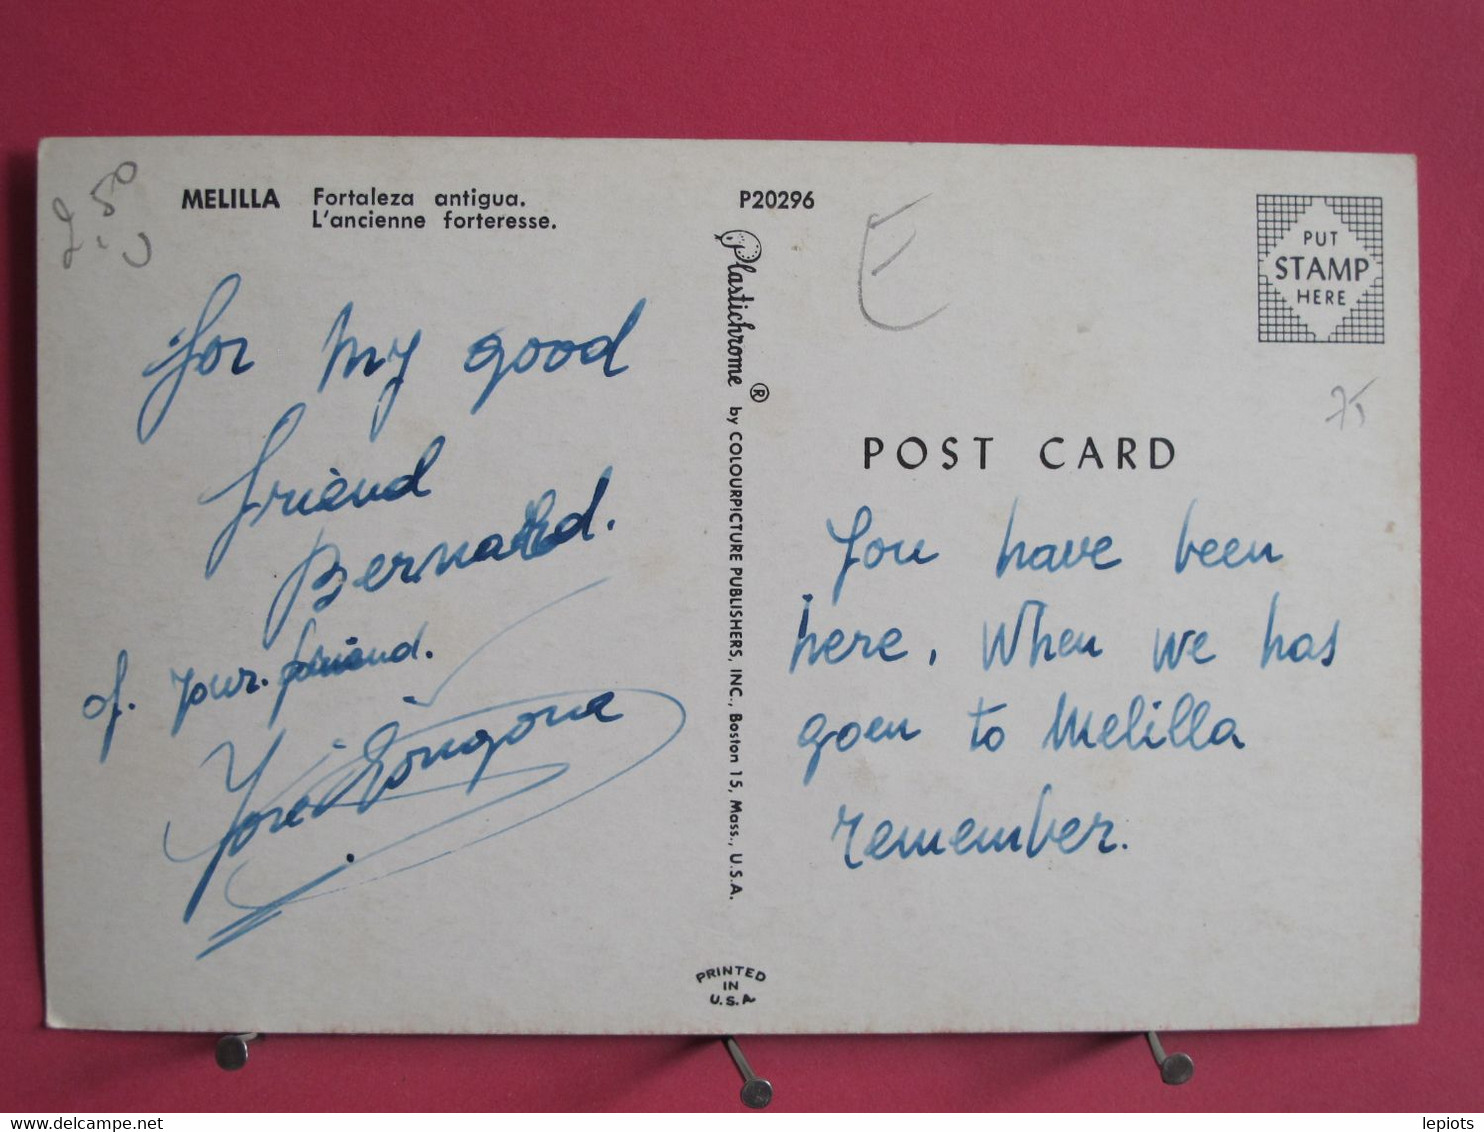 2,50
MELILLA Fortaleza antigua.
L'ancienne forteresse.
for my good
friend
Bernard.
of. your. friend.
José Longona
P20296
Plastichrome ® by COLOURPICTURE PUBLISHERS, INC., Boston 15, Mass., U.S.A.
PRINTED
IN
U.S.A
E
PUT
STAMP
HERE
75
POST CARD
You have been
here, When we has
goen to Melilla
remember.
lepiots